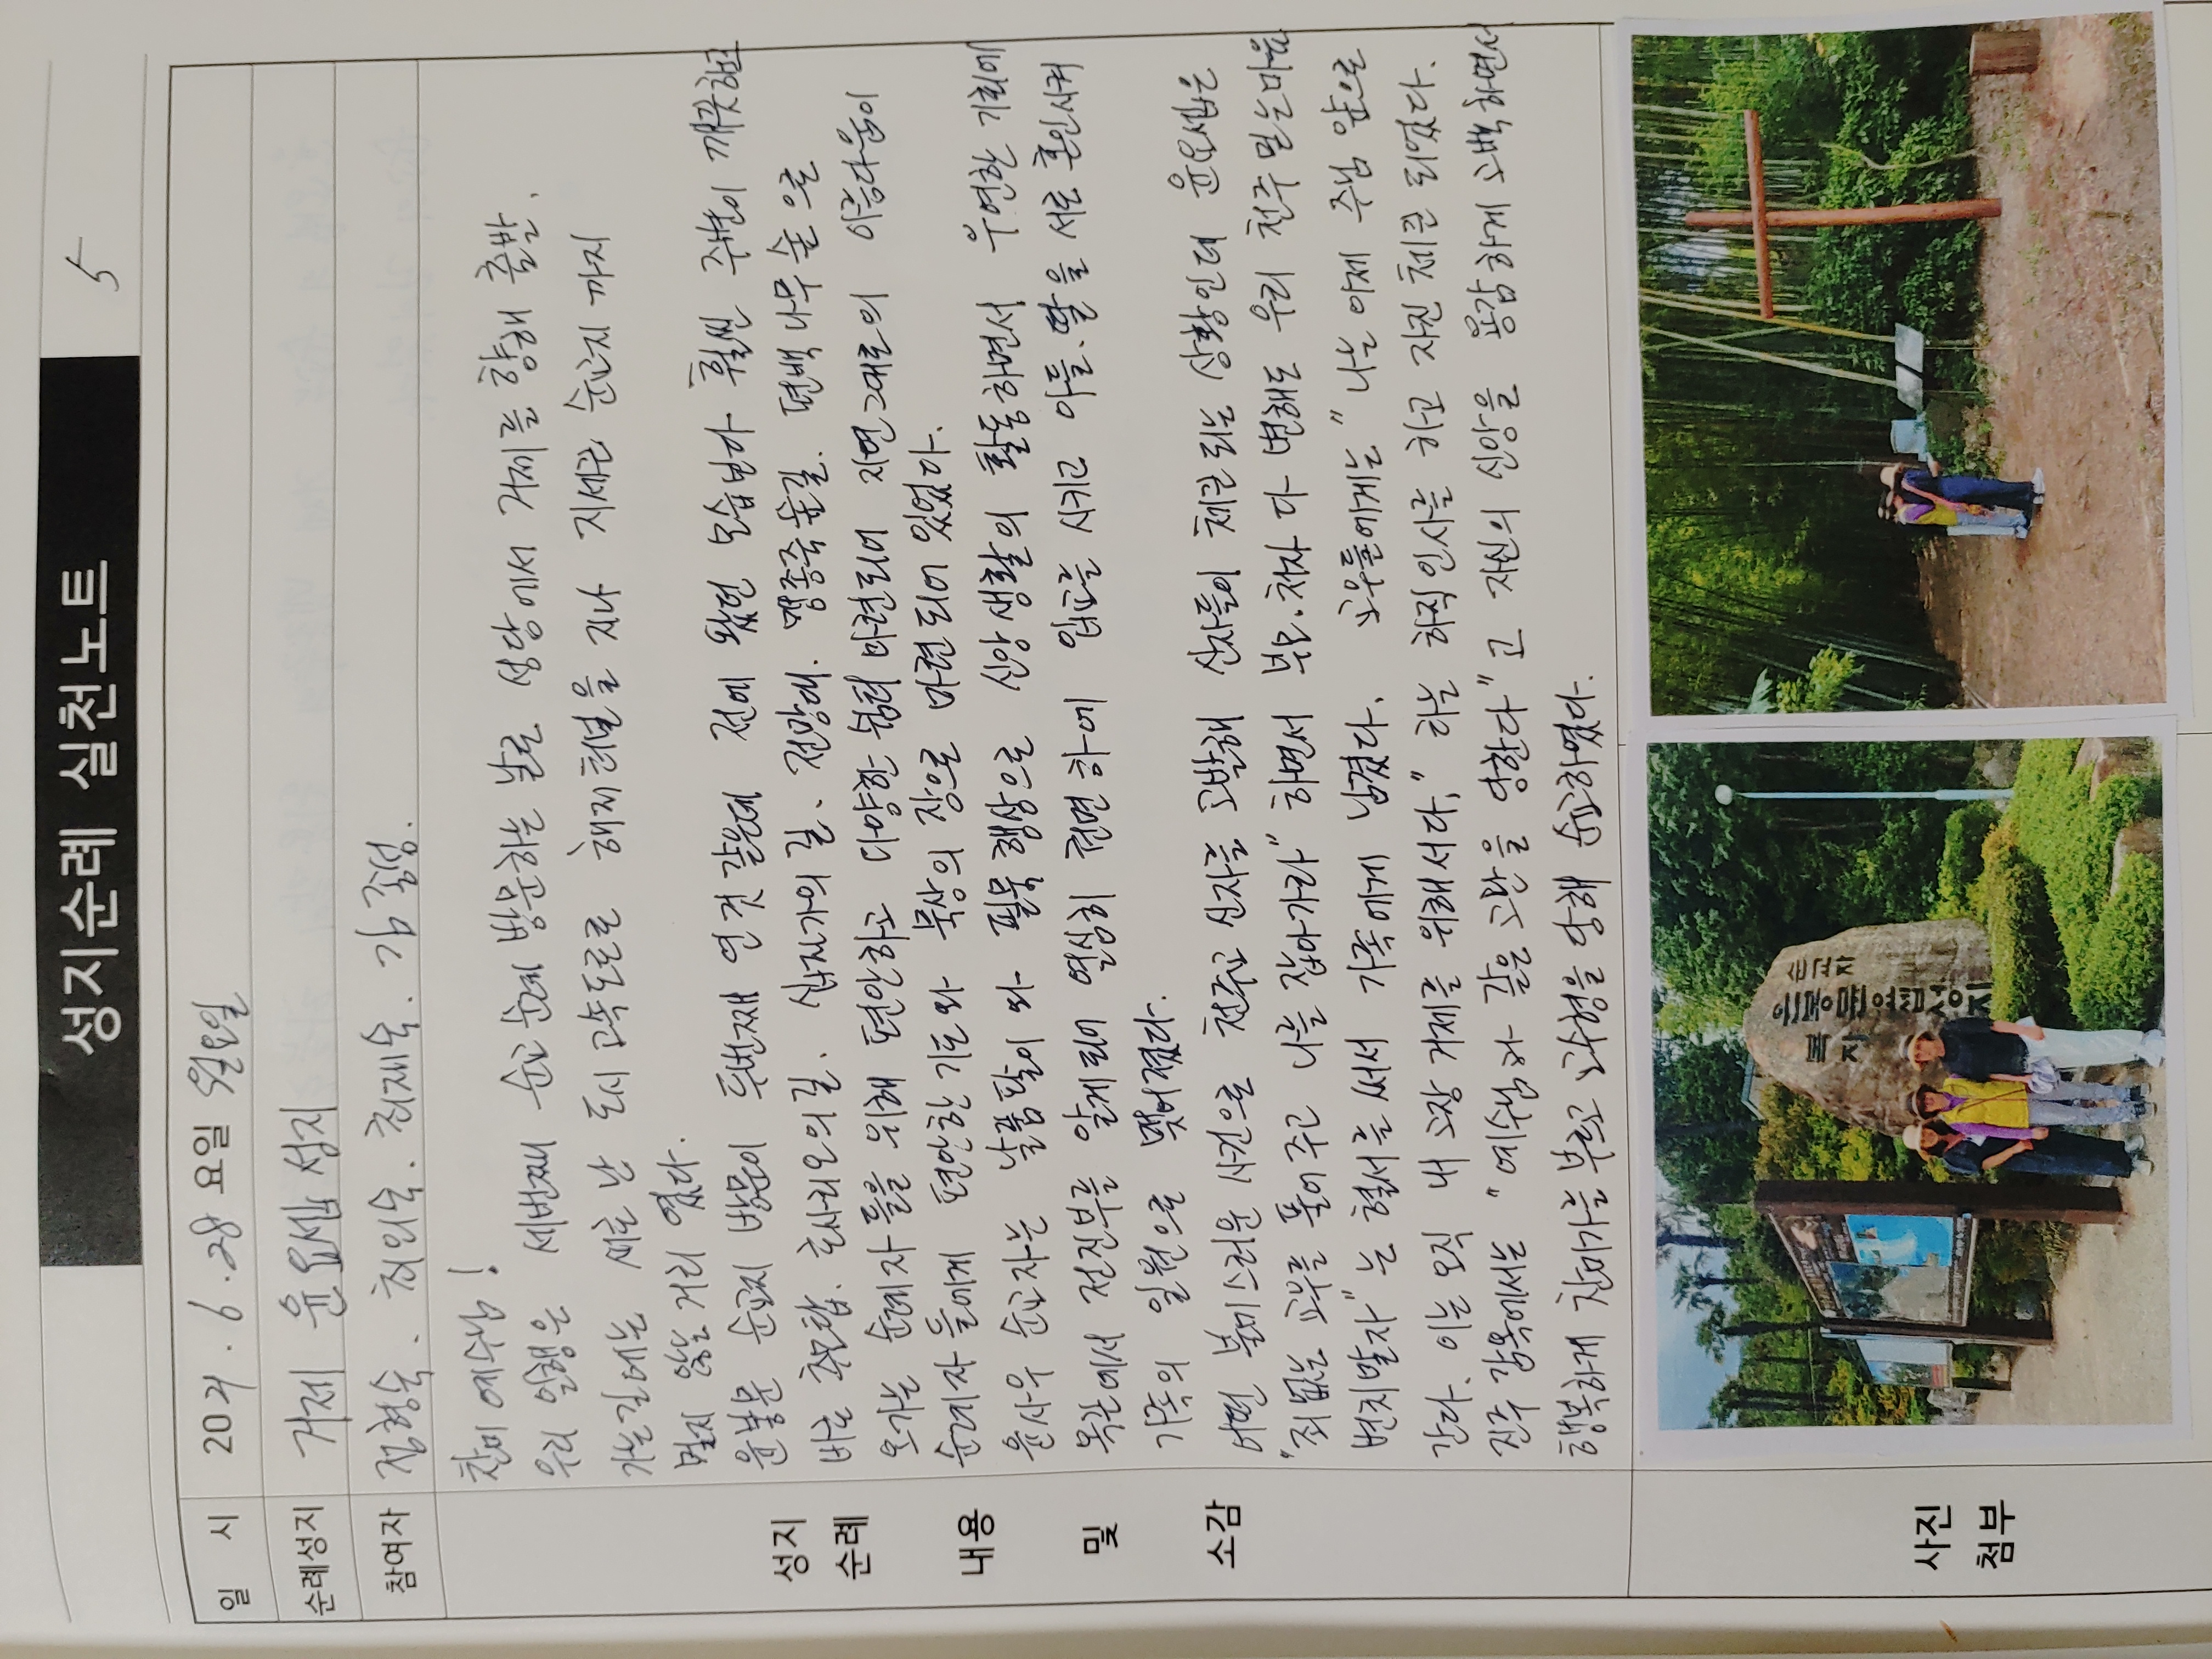 성지순례 실천노트
5
일 시 2021. 6. 28 요일 월요일
순례성지 거제 윤요셉 성지
참여자 정형숙. 최외숙. 최재숙. 김종성.
성지 순례 내용 및 소감
찬미 예수님!
우리 일행은 세번째 순교 순례 방문하는 날로 성당에서 거제를 향해 출발.
가는길에는 새로 난 도시 고속도로로 해저터널을 지나 지세포 순교지 까지
멀지 않는 거리 였다.
윤봉문 순교지 방문이 두번째 인것 같은데 전에 왔던 모습보다 훨씬 주변이 깨끗하고
바로 추모탑. 로사리오의 길. 십자가의 길. 전망대. 맹종죽숲길. 편백 나무 숲으로
오가는 순례자 들을 위해 편안하고 다양한 쉼터 마련되어 자연그대로의 아름다움이
순례자 들에게 편안한 기도와 묵상의 장으로 마련 되어 있었다.
윤사우 순교자는 날품팔이 와 필묵 행상으로 신앙생활의 활동하면서 우연한 기회에
옥관에서 전진부를 알게되어 열심히 권면 하에 입교를 시키고 아들.딸을 서로 혼인시켜
가족의 일원으로 맺어졌다.
어떤 불미스러운 사건으로 천주교 신자를 고발해 신자들이 체포 되는 상황인데 윤요셉은
"죄없는 교우를 풀어 주고 나를 잡아가라" 하면서 부모.처자 다 변해도 우리 천주 믿는마음
변치말자"는 혈서를 써서 가족에게 남겼다. 교우들에게는 "나는 이제 주님 앞으로
간다. 이는 오직 내 고장 거제를 위해서다," 하는 하직인사를 하고 자진 체포 되었다.
진주 감옥에서는 "예수님과 같은 고난을 당한다"고 자신의 신앙을 용감하게 고백하면서
행복하게 찬미가를 부르고 교수형을 당해 순교하였다.
사진 첨부
순교자
윤봉문요셉성지